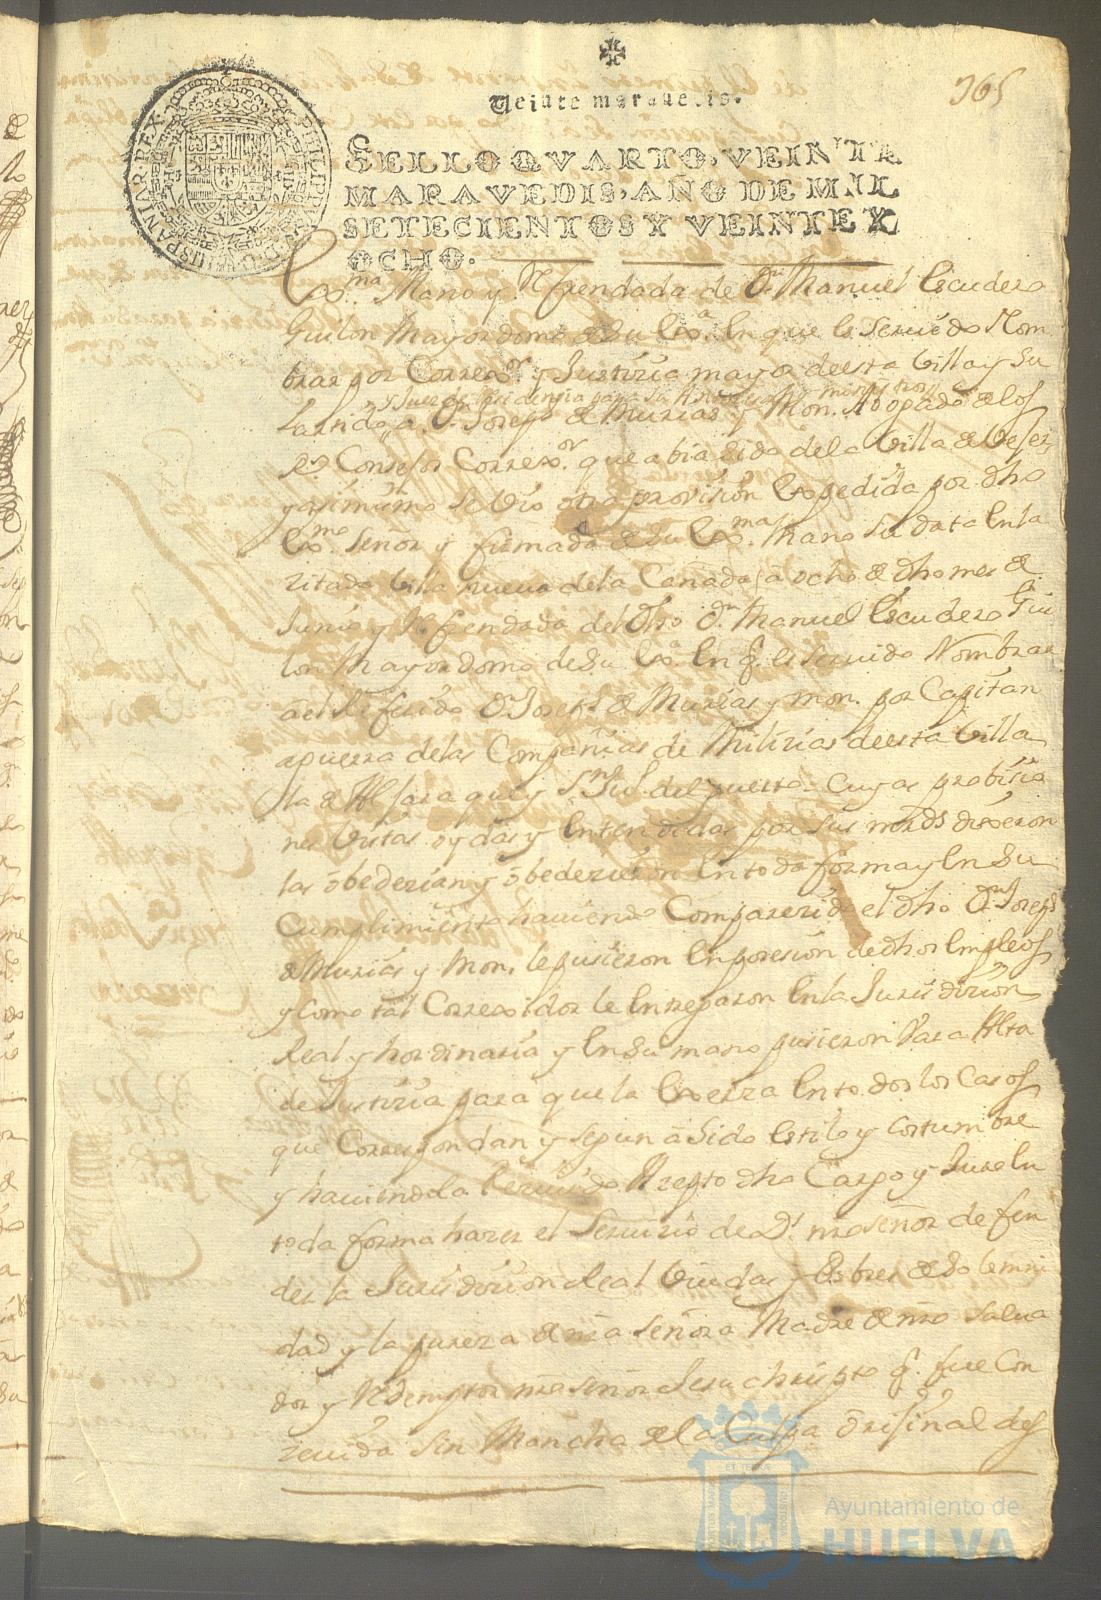 365
Veinte maravedis.
SELLO QVARTO, VEINTE
MARAVEDIS, AÑO DE MIL
SETECIENTOS Y VEINTE Y
OCHO.
PHILIPPVS V D G HISPANIAR REX
Exma Mano y Refrendada de Dn Manuel Escudero
Guilon Mayordomo de Su Exa. En que es Servido Nom
brar por Correxr y Justizia mayor de esta Villa y Su
y Juez de Residencia para su Antezesor y ministros
Partido a Dn Joseph de Murias y Mon. Abogado de los
Rs Consejos Correxor que abia Sido de la Villa de Bejer
y asimismo Se Vio otra provision Expedida por dho
Exmo Señor y firmada de Su Exma Mano Su data En la
zitada Villa nueva de la Cañada, a ocho de dho mes de
Junio y Refrendada del dho Dn Manuel Escudero Gui
lon Mayordomo de Su Exa. En q. es Servido Nombrar
al Referido Dn Joseph de Murias y Mon. por Capitan
aguerra de las Compañias de Milizias de esta Villa
la de Aljaraque y Sn Jun del puerto = Cuyas probisio
nes Vistas oydas y Entendidas por sus mrds dixeron
las obedezian y obedezieron En toda forma y En Su
Cumplimiento haviendo Comparezido el dho Dn Joseph
de Murias y Mon. le pusieron En posesion de dhos Empleos
y Como tal Correxidor le Entregaron En la Jurisdizion
Real y hordinaria y En Su mano pusieron Vara Alta
de Justizia para que la Exerza En todos los Casos
que Correspondan y segun a Sido Estilo y Costumbre
y haviendola Rezivido Azepto dho Cargo y Juro En
toda forma hazer el Servizio de Ds. nro señor defen
der la Jurisdizion Real Viudas y Pobres de Solemni
dad y la pureza de nra Señora Madre de nro Salva
dor y Redemptor nro señor Jesu christo q. fue Con
zevida Sin Mancha de la Culpa original des
Ayuntamiento de
HUELVA